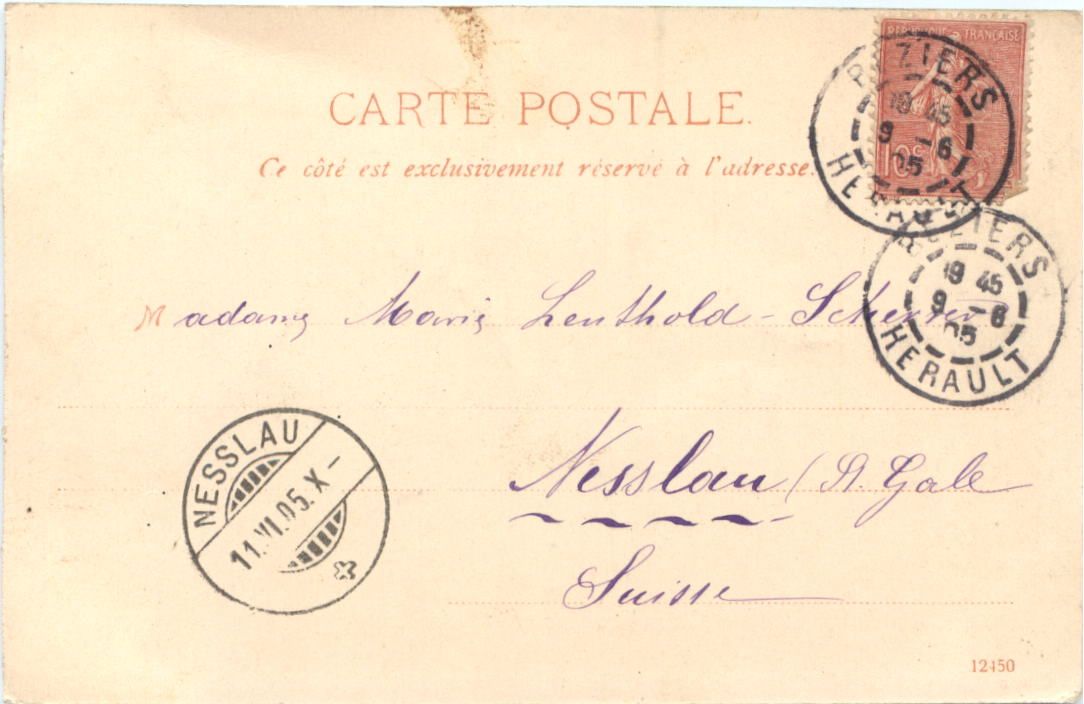 RÉPUBLIQUE FRANÇAISE
10c
BEZIERS
19 45
9 -6
05
HERAULT
CARTE POSTALE.
Ce côté est exclusivement réservé à l'adresse.
BEZIERS
19 45
9 -6
05
HERAULT
Madame Marie Leuthold-Scherrer
NESSLAU
11.VI.05.X-
Nesslau (St. Gale
Suisse
12450